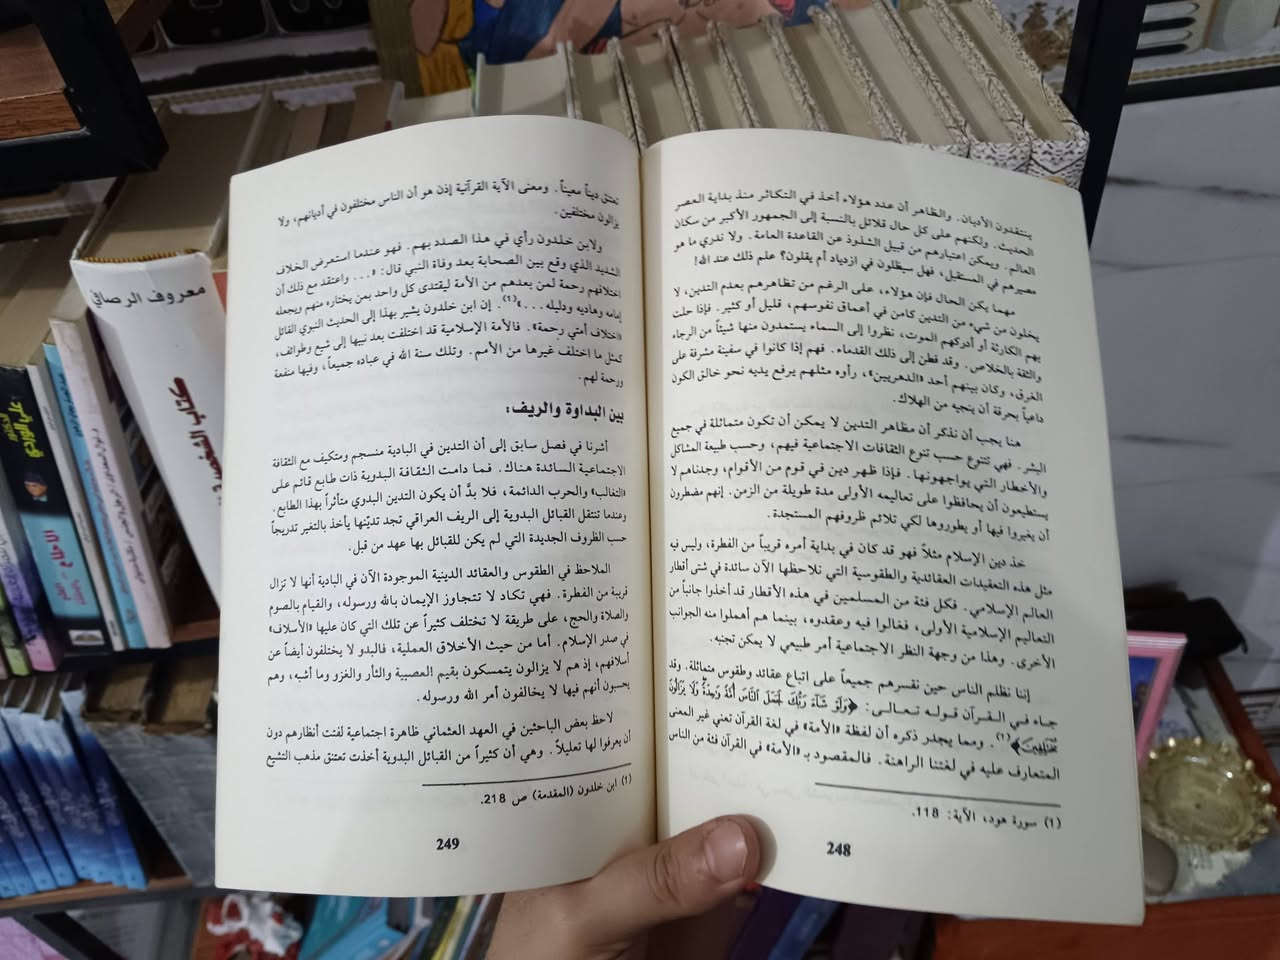 ينتقدون الأديان. والظاهر أن عدد هؤلاء أخذ في التكاثر منذ بداية العصر
الحديث. ولكنهم على كل حال قلائل بالنسبة إلى الجمهور الأكبر من سكان
العالم. ويمكن اعتبارهم من قبيل الشذوذ عن القاعدة العامة. ولا ندري ما هو
مصيرهم في المستقبل، فهل سيظلون في ازدياد أم يقلون؟ علم ذلك عند الله!
مهما يكن الحال فإن هؤلاء، على الرغم من تظاهرهم بعدم التدين، لا
يخلون من شيء من التدين كامن في أعماق نفوسهم، قليل أو كثير. فإذا حلت
بهم الكارثة أو أدركهم الموت، نظروا إلى السماء يستمدون منها شيئاً من الرجاء
والثقة بالخلاص. وقد فطن إلى ذلك القدماء. فهم إذا كانوا في سفينة مشرفة على
الغرق، وكان بينهم أحد «الدهريين»، رأوه مثلهم يرفع يديه نحو خالق الكون
داعياً بحرقة أن ينجيه من الهلاك.
هنا يجب أن نذكر أن مظاهر التدين لا يمكن أن تكون متماثلة في جميع
البشر. فهي تتنوع حسب تنوع الثقافات الاجتماعية فيهم، وحسب طبيعة المشاكل
والأخطار التي يواجهونها. فإذا ظهر دين في قوم من الأقوام، وجدناهم لا
يستطيعون أن يحافظوا على تعاليمه الأولى مدة طويلة من الزمن. إنهم مضطرون
أن يغيروا فيها أو يطوروها لكي تلائم ظروفهم المستجدة.
خذ دين الإسلام مثلاً فهو قد كان في بداية أمره قريباً من الفطرة، وليس فيه
مثل هذه التعقيدات العقائدية والطقوسية التي نلاحظها الآن سائدة في شتى أقطار
العالم الإسلامي. فكل فئة من المسلمين في هذه الأقطار قد أخذوا جانباً من
التعاليم الإسلامية الأولى، فغالوا فيه وعقدوه، بينما هم أهملوا منه الجوانب
الأخرى. وهذا من وجهة النظر الاجتماعية أمر طبيعي لا يمكن تجنبه.
إننا نظلم الناس حين نقسرهم جميعاً على اتباع عقائد وطقوس متماثلة. وقد
جاء في القرآن قوله تعالى: ﴿وَلَوْ شَآءَ رَبُّكَ لَجَعَلَ النَّاسَ أُمَّةً وَٰحِدَةً وَلَا يَزَالُونَ
مُخْتَلِفِينَ﴾(١). ومما يجدر ذكره أن لفظة «الأمة» في لغة القرآن تعني غير المعنى
المتعارف عليه في لغتنا الراهنة. فالمقصود بـ «الأمة» في القرآن فئة من الناس
(١) سورة هود، الآية: 118.
248
تعتنق ديناً معيناً. ومعنى الآية القرآنية إذن هو أن الناس مختلفون في أديانهم، ولا
يزالون مختلفين.
ولابن خلدون رأي في هذا الصدد بهم. فهو عندما استعرض الخلاف
الشديد الذي وقع بين الصحابة بعد وفاة النبي قال: «... واعتقد مع ذلك أن
اختلافهم رحمة لمن بعدهم من الأمة ليقتدى كل واحد بمن يختاره منهم ويجعله
إمامه وهاديه ودليله...»(١). إن ابن خلدون يشير بهذا إلى الحديث النبوي القائل
«اختلاف أمتي رحمة». فالأمة الإسلامية قد اختلفت بعد نبيها إلى شيع وطوائف،
كمثل ما اختلف غيرها من الأمم. وتلك سنة الله في عباده جميعاً، وفيها منفعة
ورحمة لهم.
بين البداوة والريف:
أشرنا في فصل سابق إلى أن التدين في البادية منسجم ومتكيف مع الثقافة
الاجتماعية السائدة هناك. فما دامت الثقافة البدوية ذات طابع قائم على
«التغالب» والحرب الدائمة، فلا بدَّ أن يكون التدين البدوي متأثراً بهذا الطابع.
وعندما تنتقل القبائل البدوية إلى الريف العراقي تجد تديّنها يأخذ بالتغير تدريجاً
حسب الظروف الجديدة التي لم يكن للقبائل بها عهد من قبل.
الملاحظ في الطقوس والعقائد الدينية الموجودة الآن في البادية أنها لا تزال
قريبة من الفطرة. فهي تكاد لا تتجاوز الإيمان بالله ورسوله، والقيام بالصوم
والصلاة والحج، على طريقة لا تختلف كثيراً عن تلك التي كان عليها «الأسلاف»
في صدر الإسلام. أما من حيث الأخلاق العملية، فالبدو لا يختلفون أيضاً عن
أسلافهم، إذ هم لا يزالون يتمسكون بقيم العصبية والثأر والغزو وما أشبه، وهم
يحسبون أنهم فيها لا يخالفون أمر الله ورسوله.
لاحظ بعض الباحثين في العهد العثماني ظاهرة اجتماعية لفتت أنظارهم دون
أن يعرفوا لها تعليلاً. وهي أن كثيراً من القبائل البدوية أخذت تعتنق مذهب التشيع
(١) ابن خلدون (المقدمة) ص 218.
249
معروف الرصافي
كتاب الشخصية
الدكتور
علي الوردي
الأحلام